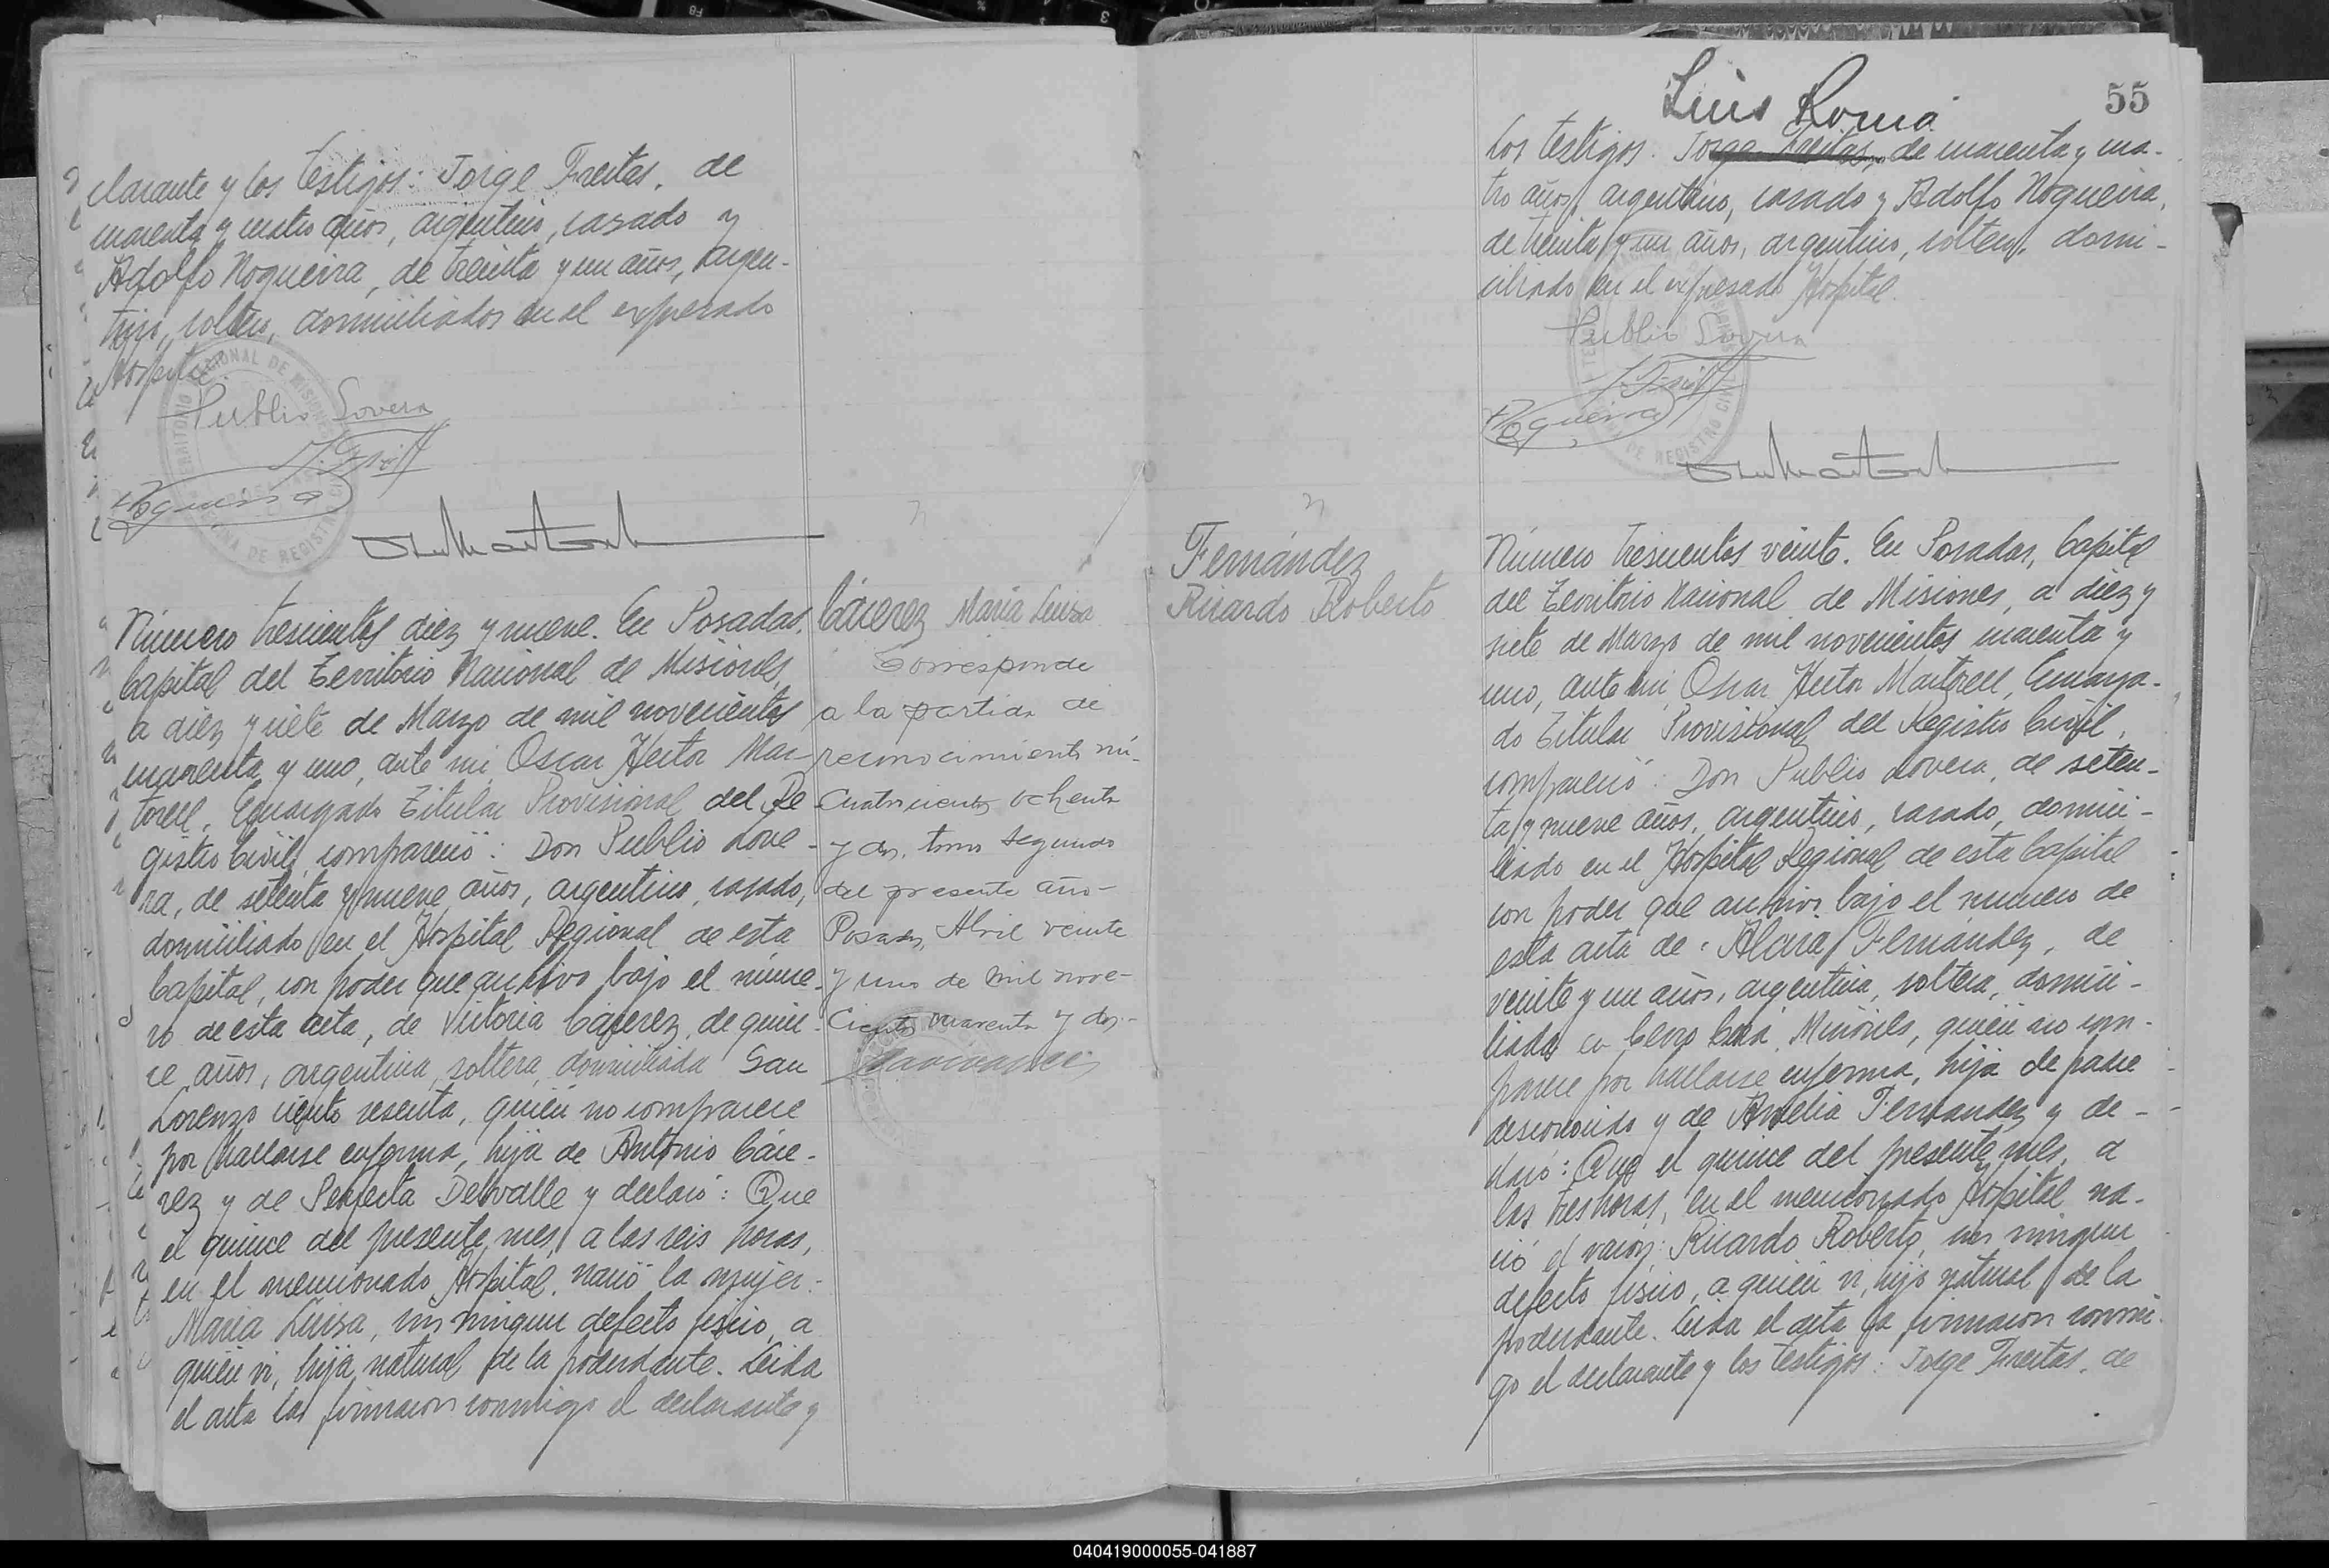 clarante y los testigos: Jorge Freitas, de
cuarenta y cuatro años, argentino, casado y
Adolfo Nogueira, de treinta y un años, argen-
tino, soltero, domiciliados en el expresado
Hospital.
Publio Lovera
J. Freit
Nogueira
Número trescientos diez y nueve. En Posadas,
Capital del Territorio Nacional de Misiones,
a diez y siete de Marzo de mil novecientos
cuarenta y uno, ante mi, Oscar Hector Mar-
torell, Encargado Titular Provisional del Re-
gistro Civil, compareció: Don Publio Love-
ra, de setenta y nueve años, argentino, casado,
domiciliado en el Hospital Regional de esta
Capital, con poder que archivo bajo el núme-
ro de esta acta, de Victoria Cácerez, de quin-
ce años, argentina, soltera, domiciliada San
Lorenzo ciento sesenta, quién no comparece
por hallarse enferma, hija de Antonio Cáce-
rez y de Perfecta Delvalle y declaró: Que
el quince del presente mes, a las seis horas,
en el mencionado Hospital, nació la mujer:
Maria Luisa, sin ningun defecto fisico, a
quién vi, hija natural de la poderdante. Leida
el acta la firmaron conmigo el declarante y
Cácerez Maria Luisa
Corresponde
a la partida de
reconocimiento nú-
Cuatrocientos ochenta
y dos, tomo segundo
del presente año-
Posadas, Abril veinte
y uno de mil nove-
Cientos cuarenta y dos.-
Fernández
Ricardo Roberto
55
Luis Romá
los testigos: Jorge Freitas, de cuarenta y cua-
tro años, argentino, casado y Adolfo Nogueira,
de treinta y un años, argentino, soltero, domi-
ciliado en el expresado Hospital.
Publio Lovera
J. Freit
Nogueira
Número trescientos veinte. En Posadas, Capital
del Territorio Nacional de Misiones, a diez y
siete de Marzo de mil novecientos cuarenta y
uno, ante mi, Oscar Hector Martorell, Encarga-
do Titular Provisional del Registro Civil,
compareció: Don Publio Lovera, de seten-
ta y nueve años, argentino, casado, domici-
liado en el Hospital Regional de esta Capital
con poder que archivo bajo el numero de
esta acta de: Alcira Fernández, de
veinte y un años, argentina, soltera, domici-
liada en Cerro Corá, Misiones, quién no com-
parece por hallarse enferma, hija de padre
desconocido y de Amelia Fernández y de-
claró: Que el quince del presente mes, a
las tres horas, en el mencionado Hospital na-
ció el varón: Ricardo Roberto, sin ningun
defecto fisico, a quién vi, hijo natural de la
poderdante. Leida el acta la firmaron conmi-
go el declarante y los testigos: Jorge Freitas, de
040419000055-041887